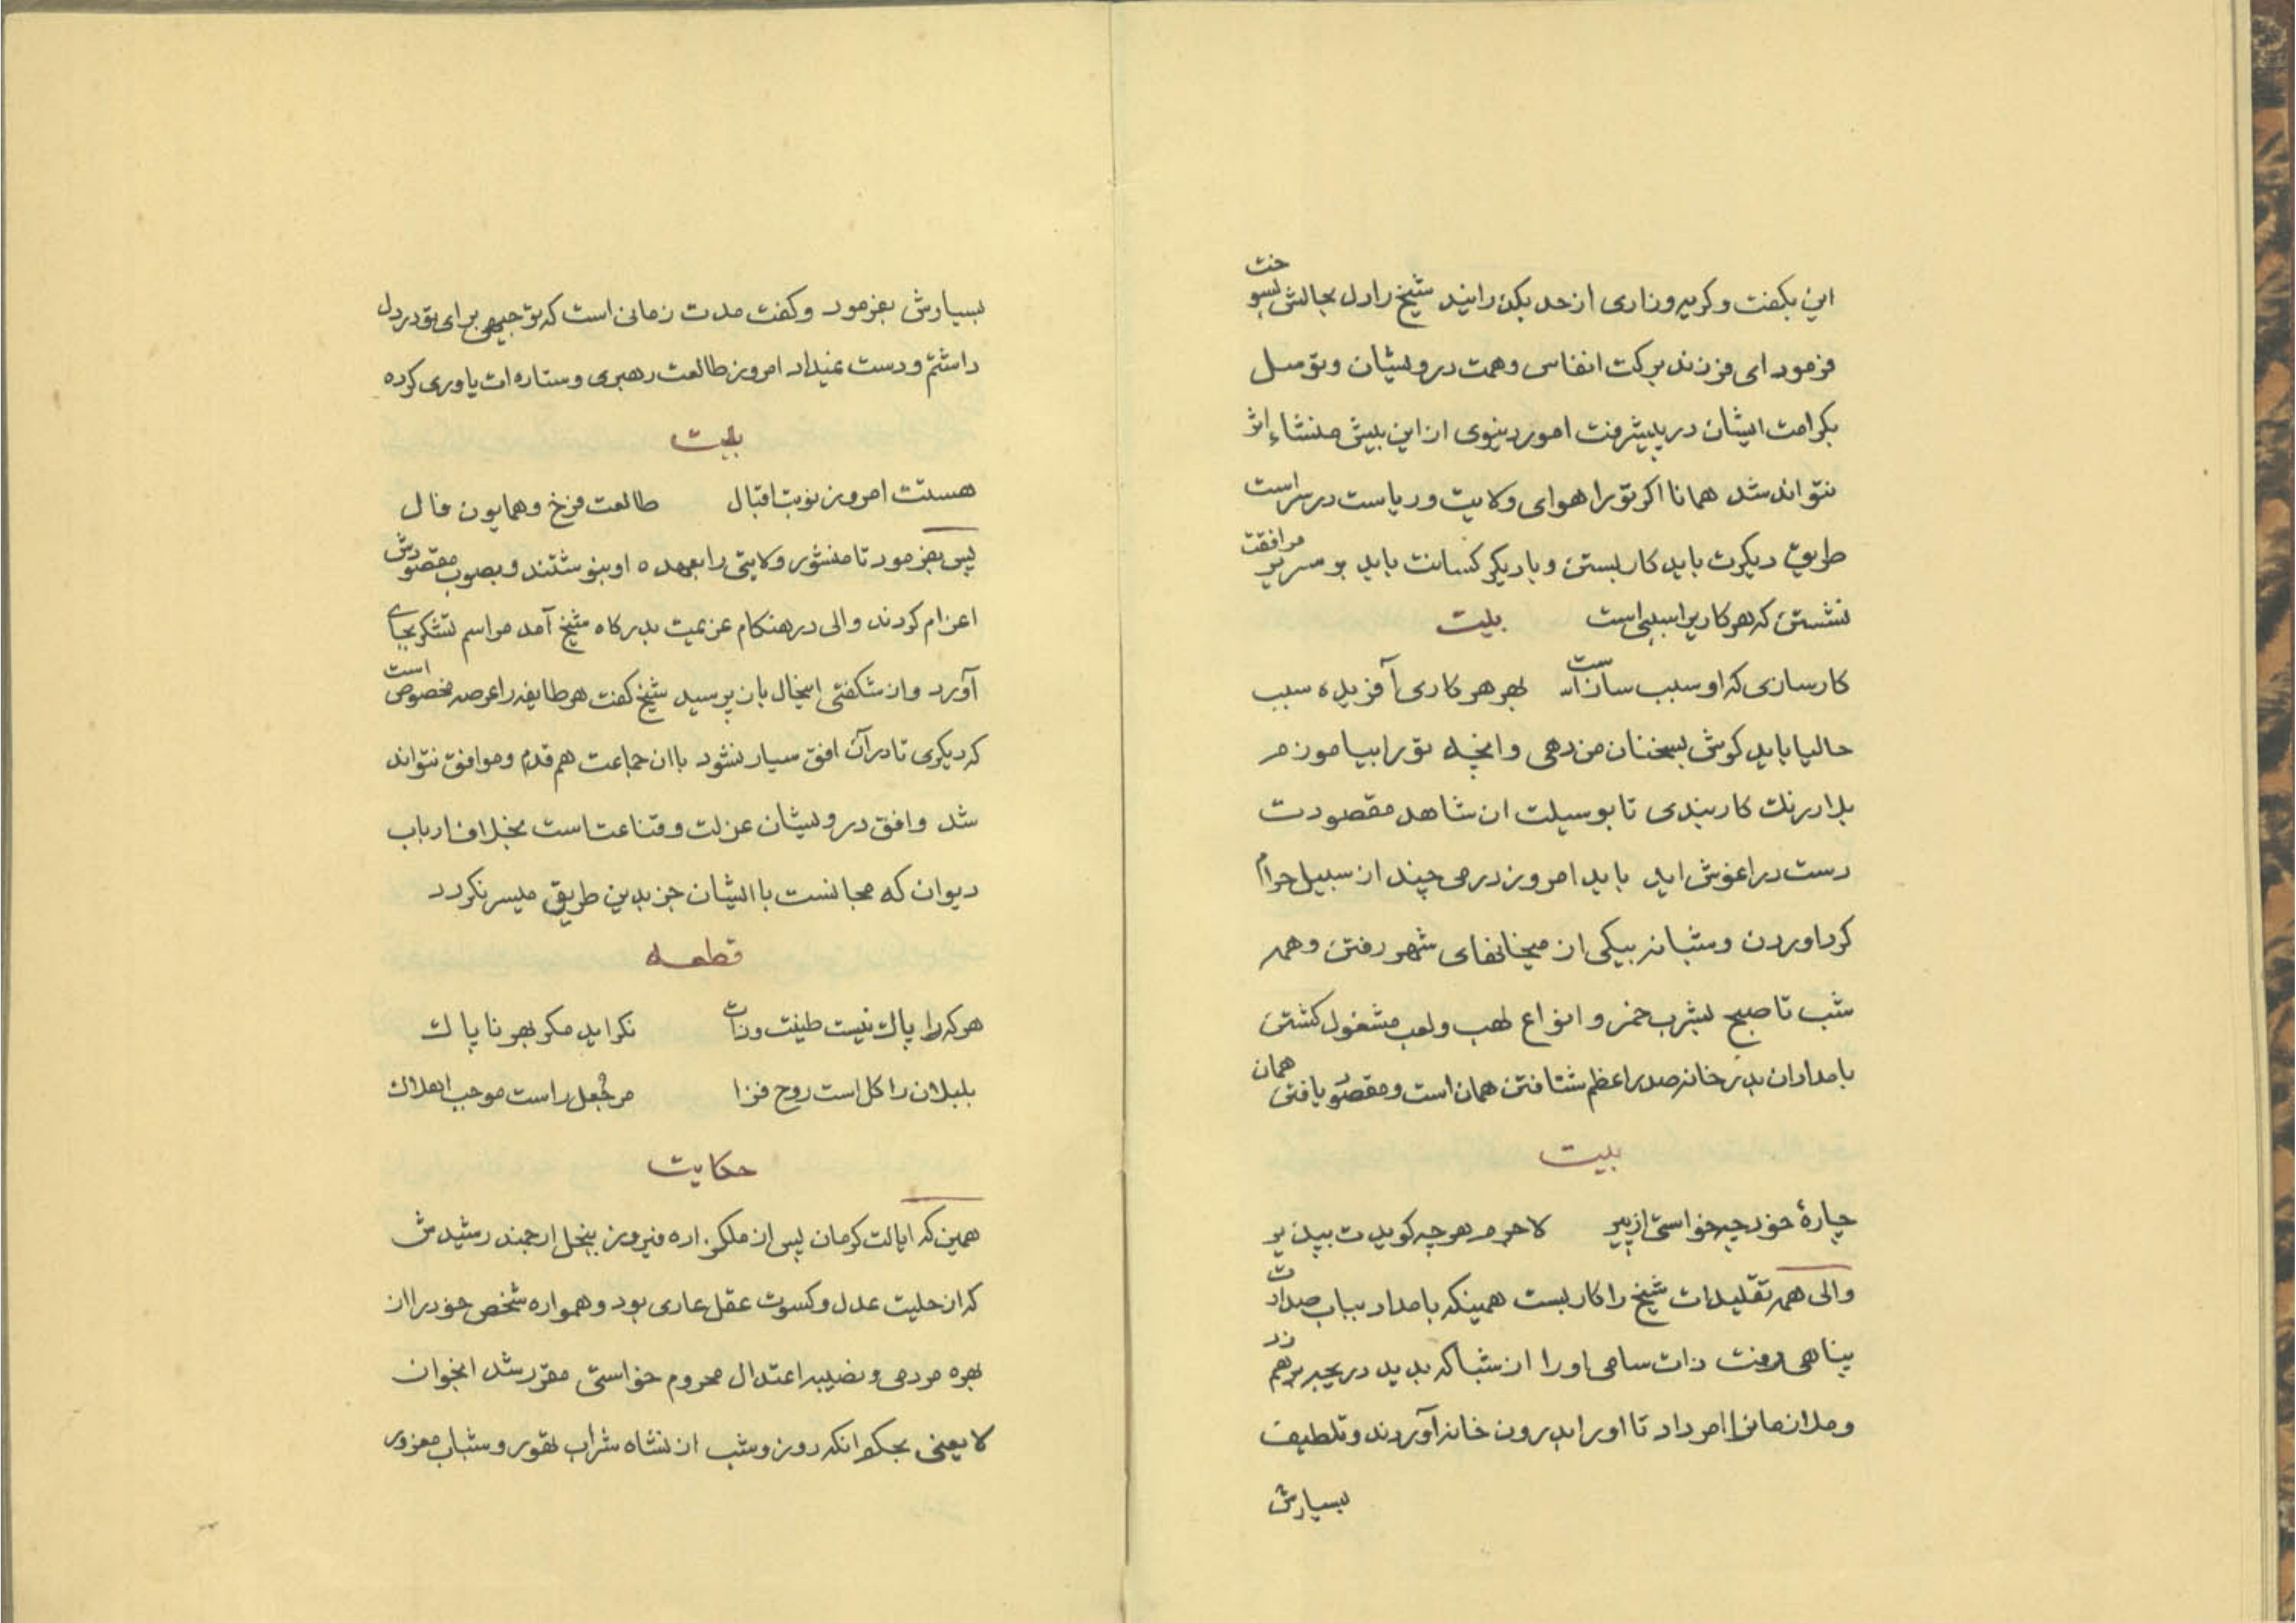 این بکفت و کریه و زاری از حد بکذرانید شیخ را دل بحالش بسوخت
فرمود ای فرزند برکت انفاس و همت درویشان و توسل
بکرامت ایشان در پیشرفت امور دنیوی از این بیش منشاء اثر
نتواند شد همانا اکر تو را هوای ولایت و ریاست در سر است
طریق دیکرت باید کار بستن و با دیکر کسانت باید بر سریر مرافقت
نشستن که هر کاریرا سببی است بیت
کارسازی که او سبب ساز است بهر هر کاری آفریده سبب
حالیا باید کوش بسخنان من دهی و انچه تو را بیاموزم
بلادرنك کار بندی تا بوسیلت ان شاهد مقصودت
دست در اغوش اید باید امروز درمی چند از سبیل حرام
کرد اوردن و شبانه بیکی از میخانهای شهر رفتن و همه
شب تا صبح بشرب خمر و انواع لهب و لعب مشغول کشتن
بامدادان بدر خانه صدر اعظم شتافتن همان است و مقصود یافتن همان
بیت
چارهٔ خود چه خواستی از پیر لاجرم هر چه کویدت بپذیر
والی همه تقلیدات شیخ را کار بست همینکه بامداد بباب صدارت
پناهی رفت ذات سامی او را از شباکه بدید دریچه بر هم زد
و ملازمانرا امر داد تا او را بدرون خانه آوردند و تلطیف
بسیارش
بسیارش بفرمود و کفت مدت زمانی است که توجیهی برای تو در دل
داشتم و دست نمیداد امروز طالعت رهبری و ستاره ات یاوری کرده
بیت
هستت امروز نوبت اقبال طالعت فرخ و همایون فال
پس بفرمود تا منشور ولایتی را بعهده او بنوشتند و بصوب مقصودش
اعزام کردند والی در هنکام عزیمت بدرکاه شیخ آمد مراسم تشکر بجای
آورد و از شکفتی اینحال باز پرسید شیخ کفت هر طایفه را عرصه مخصوص است
که دیکری تا در آن افق سیار نشود با ان جماعت هم قدم و موافق نتواند
شد و افق درویشان عزلت و قناعت است بخلاف ارباب
دیوان که مجالست با ایشان جز بدین طریق میسر نکردد
قطعه
هر که را پاك نیست طینت و ذات نکراید مکر بهر ناپاك
بلبلان را کل است روح فزا مر جُعل راست موجب اهلاك
حکایت
همین که ایالت کرمان پس از ملکزاده فیروز بنجل ارجمند رشیدش
که از حلیت عدل و کسوت عقل عاری بود و همواره شخص خود را از
بهره مردمی و نصیبه اعتدال محروم خواستی مقرر شد انجوان
لا یعنی بحکم انکه روز و شب از نشاه شراب تهور و شباب مغرور